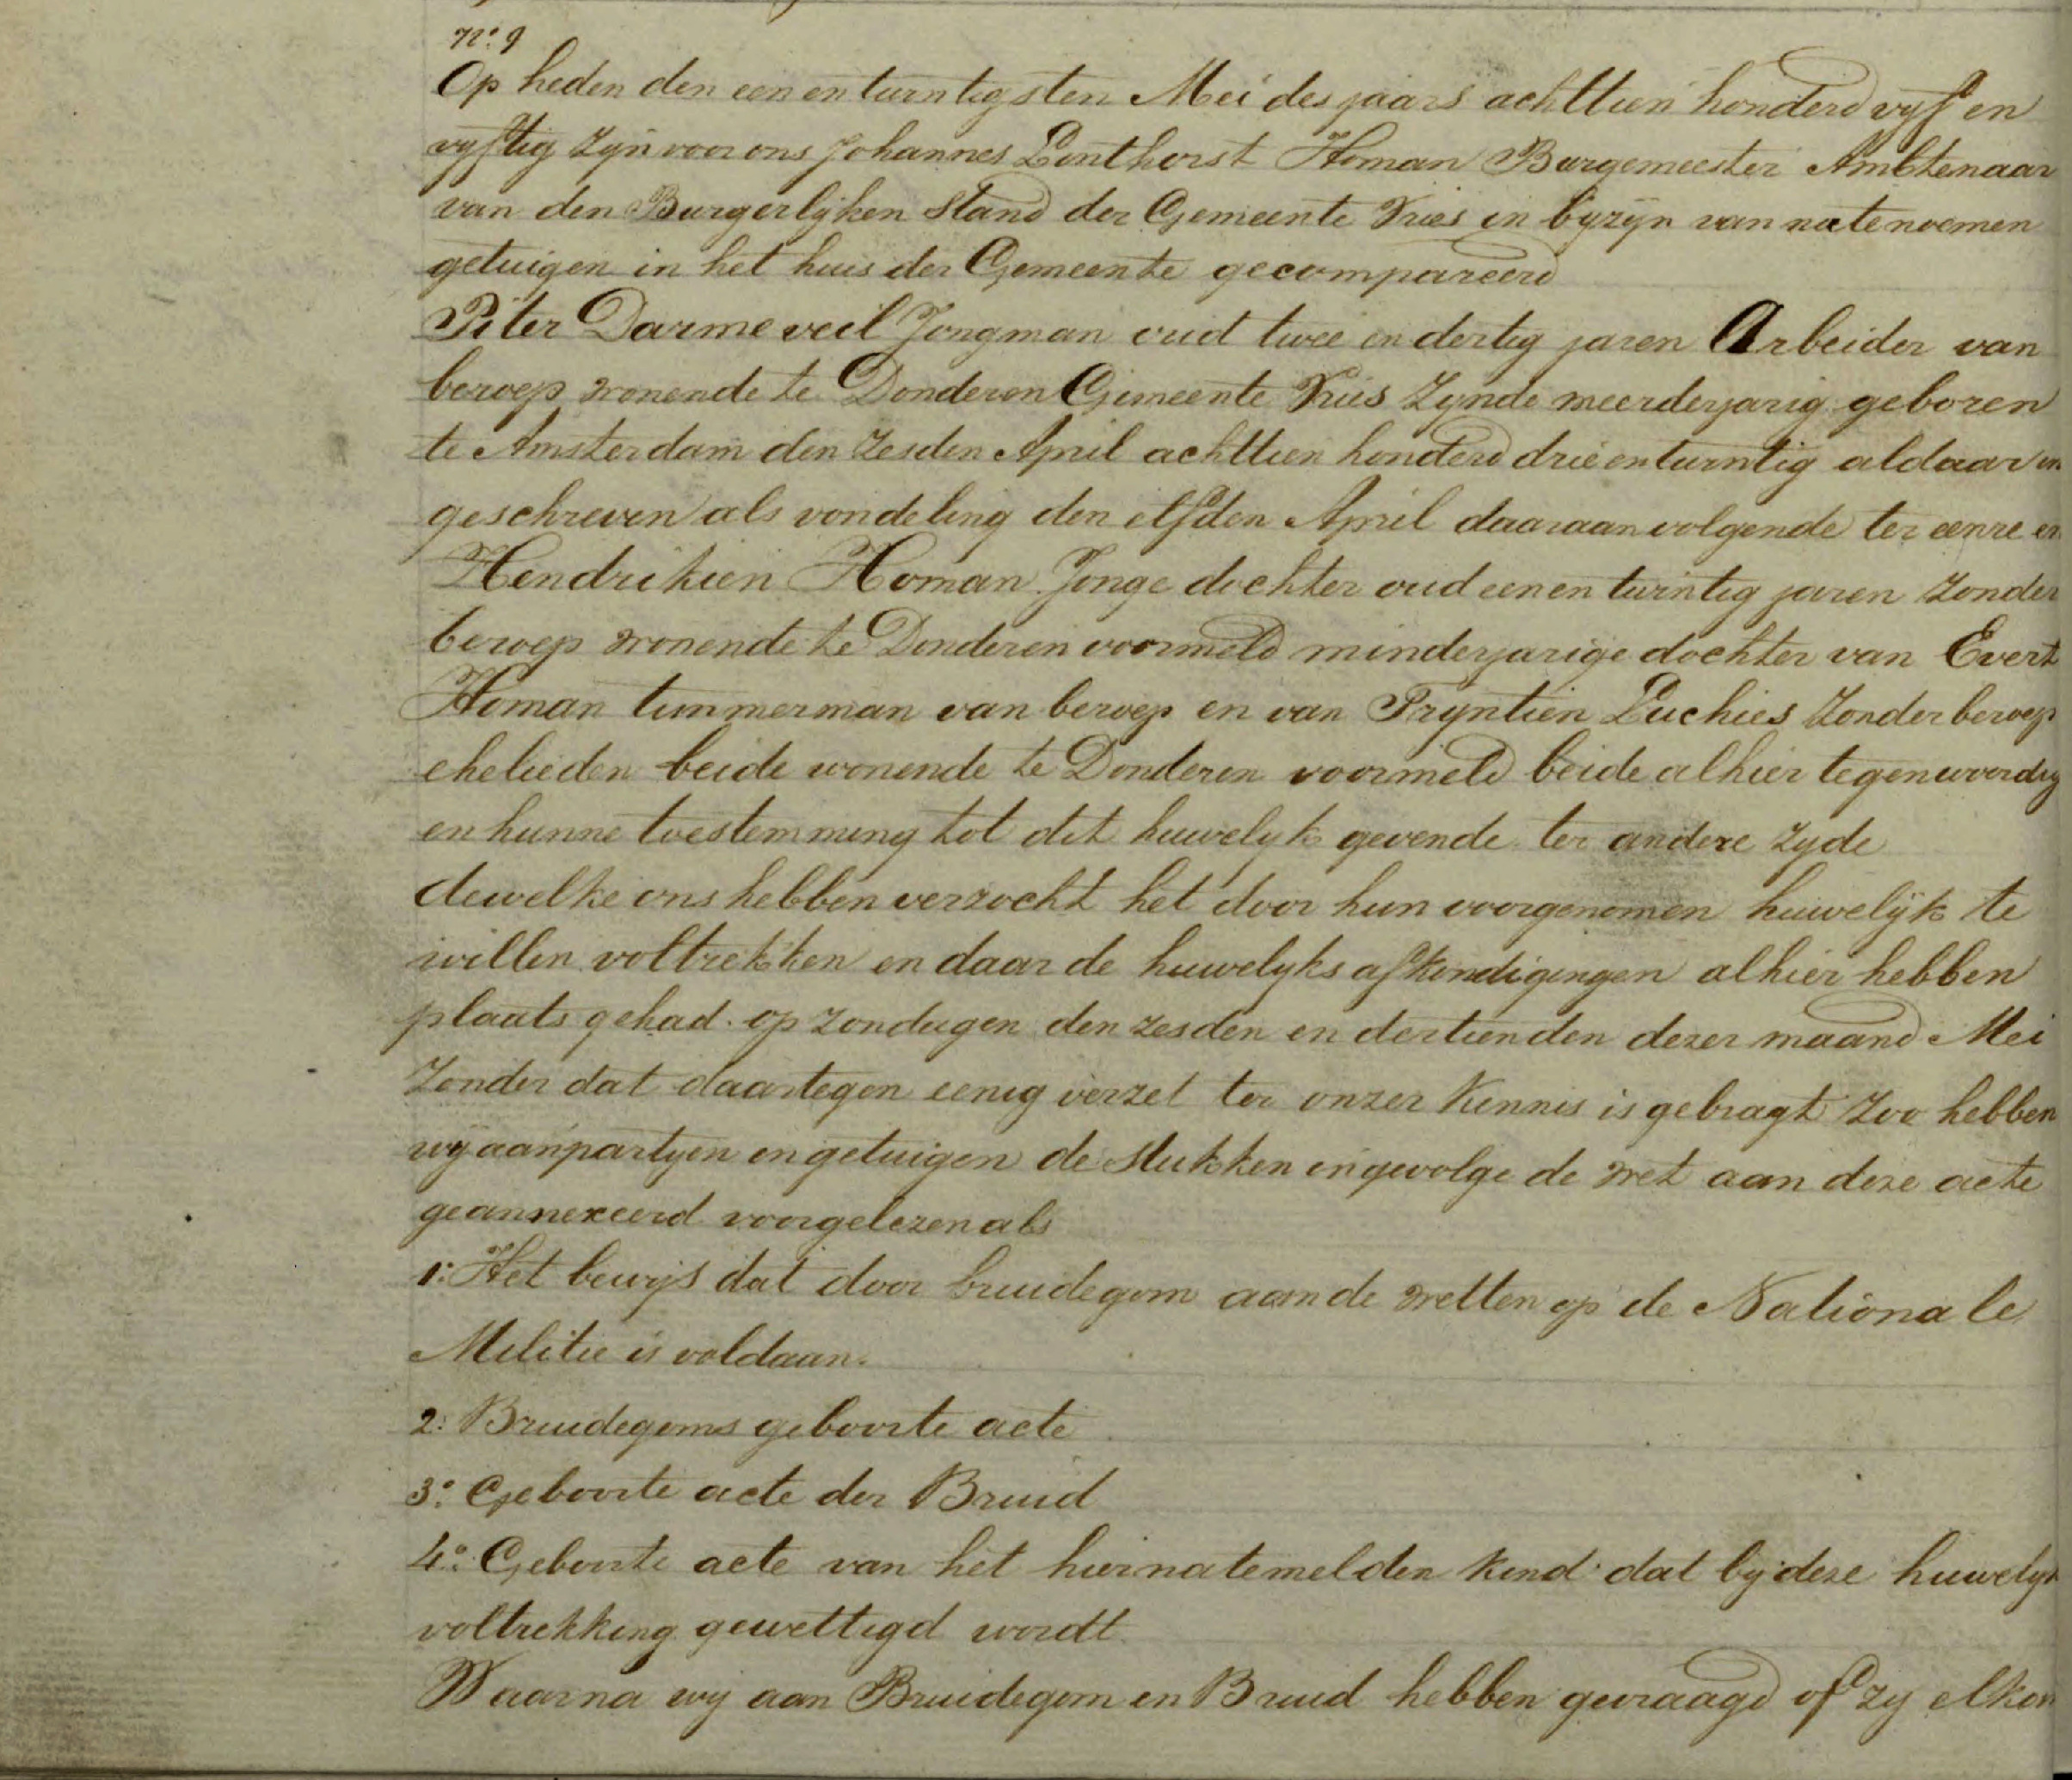 No. 9
Op heden den een en twintigsten Mei des jaars achttien honderd vyf en
vyftig zyn voor ons Johannes Lonthorst Homan Burgemeester Ambtenaar
van den Burgerlijken Stand der Gemeente Vries in byzyn van nate noemen
getuigen in het huis der Gemeente gecompareerd
Piter Darmeveil Jongman oud twee en dertig jaren Arbeider van
beroep wonende te Donderen Gemeente Vries zynde meerderjarig geboren
te Amsterdam den zesden April achttien honderd drie en twintig aldaar in
geschreven als vondeling den elfden April daaraanvolgende ter eenre en
Hendrikien Homan Jonge dochter oud een en twintig jaren zonder
beroep wonende te Donderen voormeld minderjarige dochter van Evert
Homan timmerman van beroep en van Pryntien Luchies zonder beroep
ehelieden beide wonende te Donderen voormeld beide alhier tegenwoordig
en hunne toestemming tot dit huwelyk gevende ter andere zyde
dewelke ons hebben verzocht het door hun voorgenomen huwelijk te
willen voltrekken en daar de huwelyks afkondigingen alhier hebben
plaats gehad op zondagen den zesden en dertienden dezer maand Mei
zonder dat daartegen eenig verzet ter onzer kennis is gebragt zoo hebben
wy aan partyen en getuigen de stukken ingevolge de wet aan deze acte
geannexeerd voorgelezen als
1o. Het bewijs dat door bruidegom aan de wetten op de Nationale
Militie is voldaan.
2o. Bruidegoms geboorte acte
3o. Geboorte acte der Bruid
4o. Geboorte acte van het hiernatemelden kind dat by deze huwelyk
voltrekking gewettigd wordt
Waarna wy aan Bruidegom en Bruid hebben gevraagd of zy elkan